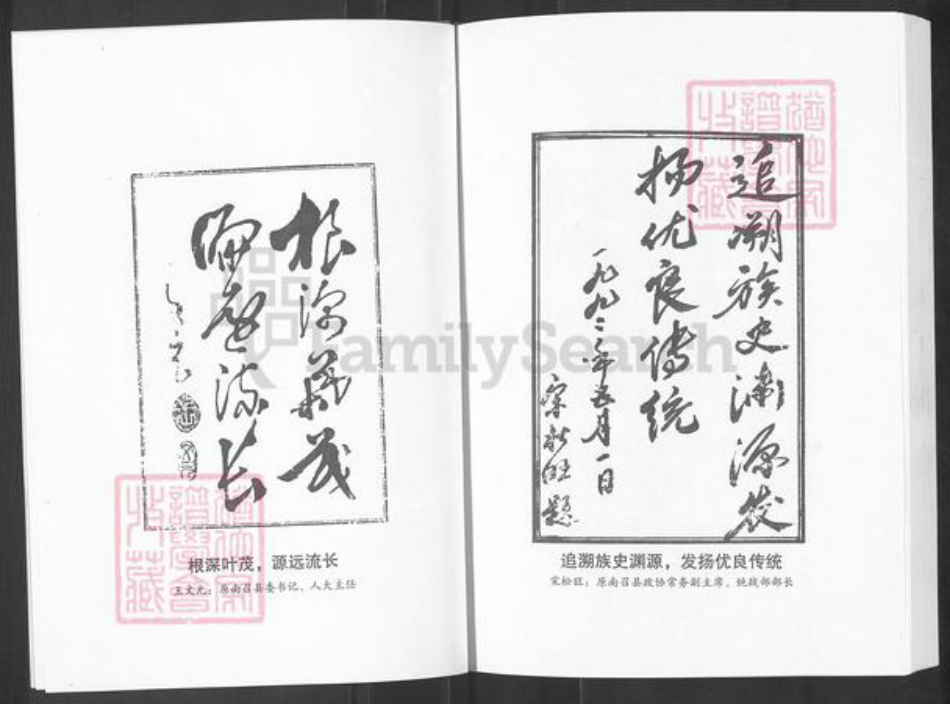 根深葉茂
源遠流长
根深叶茂，源远流长
王文元：原南召县委书记、人大主任
追溯族史渊源发
扬优良传统
一九九三年五月一日
宋松旺题
追溯族史渊源，发扬优良传统
宋松旺：原南召县政协常务副主席、统战部部长
FamilySearch
譜學會
收藏
譜學會
收藏